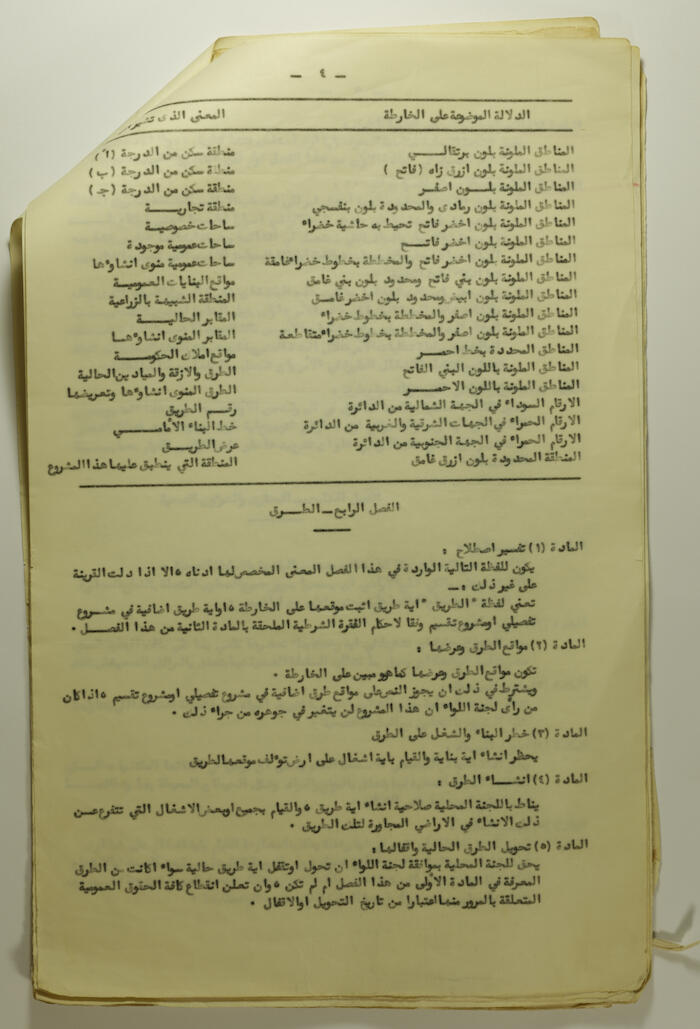 - ٤ -
الدلالة الموضوعة على الخارطة المعنى الذي
المناطق الملونة بلون برتقالي منطقة سكن من الدرجة (أ)
المناطق الملونة بلون ازرق زاه (فاتح) منطقة سكن من الدرجة (ب)
المناطق الملونة بلون اصفر منطقة سكن من الدرجة (ج)
المناطق الملونة بلون رمادى والمحدودة بلون بنفسجي منطقة تجارية
المناطق الملونة بلون اخضر فاتح تحيط به حاشية خضراء ساحات خصوصية
المناطق الملونة بلون اخضر فاتح ساحات عمومية موجودة
المناطق الملونة بلون اخضر فاتح والمخططة بخطوط خضراء غامقة ساحات عمومية منوى انشاؤها
المناطق الملونة بلون بني فاتح ومحدود بلون بني غامق مواقع البنايات العمومية
المناطق الملونة بلون ابيض ومحدود بلون اخضر غامق المنطقة الشبيهة بالزراعية
المناطق الملونة بلون اصفر والمخططة بخطوط خضراء المقابر الحالية
المناطق الملونة بلون اصفر والمخططة بخطوط خضراء متقاطعة المقابر المنوى انشاؤها
المناطق المحددة بخط احمر مواقع املاك الحكومة
المناطق الملونة باللون البني الفاتح الطرق والازقة والميادين الحالية
المناطق الملونة باللون الاحمر الطرق المنوى انشاؤها وتعريضها
الارقام السوداء في الجهة الشمالية من الدائرة رقم الطريق
الارقام الحمراء في الجهات الشرقية والغربية من الدائرة خط البناء الأمامي
الارقام الحمراء في الجهة الجنوبية من الدائرة عرض الطريق
المنطقة المحدودة بلون ازرق غامق المنطقة التي ينطبق عليها هذا المشروع
الفصل الرابع - الطرق
المادة (١) تفسير اصطلاح :
يكون للفظة التالية الواردة في هذا الفصل المعنى المخصص لها ادناه ، الا اذا دلت القرينة
على غير ذلك :ـ
تعني لفظة "الطريق" اية طريق اثبت موقعها على الخارطة ، اواية طريق اضافية في مشروع
تفصيلي اومشروع تقسيم وفقا لاحكام الفقرة الشرطية الملحقة بالمادة الثانية من هذا الفصل .
المادة (٢) مواقع الطرق وعرضها :
تكون مواقع الطرق وعرضها كما هو مبين على الخارطة .
ويشترط في ذلك ان يجوز النص على مواقع طرق اضافية في مشروع تفصيلي اومشروع تقسيم ، اذا كان
من رأى لجنة اللواء ان هذا المشروع لن يتغير في جوهره من جراء ذلك .
المادة (٣) خطر البناء والشغل على الطرق
يحظر انشاء اية بناية والقيام باية اشغال على ارض تولف موقعها الطريق
المادة (٤) انشاء الطرق :
يناط باللجنة المحلية صلاحية انشاء اية طريق ، والقيام بجميع اوبعض الاشغال التي تتفرع عن
ذلك الانشاء في الاراضي المجاورة لتلك الطريق .
المادة (٥) تحويل الطرق الحالية واقفالها :
يحق للجنة المحلية بموافقة لجنة اللواء ان تحول اوتقفل اية طريق حالية سواء اكانت من الطرق
المعرفة في المادة الأولى من هذا الفصل ام لم تكن ، وان تعلن انقطاع كافة الحقوق العمومية
المتعلقة بالمرور منها اعتبارا من تاريخ التحويل اوالاقفال .